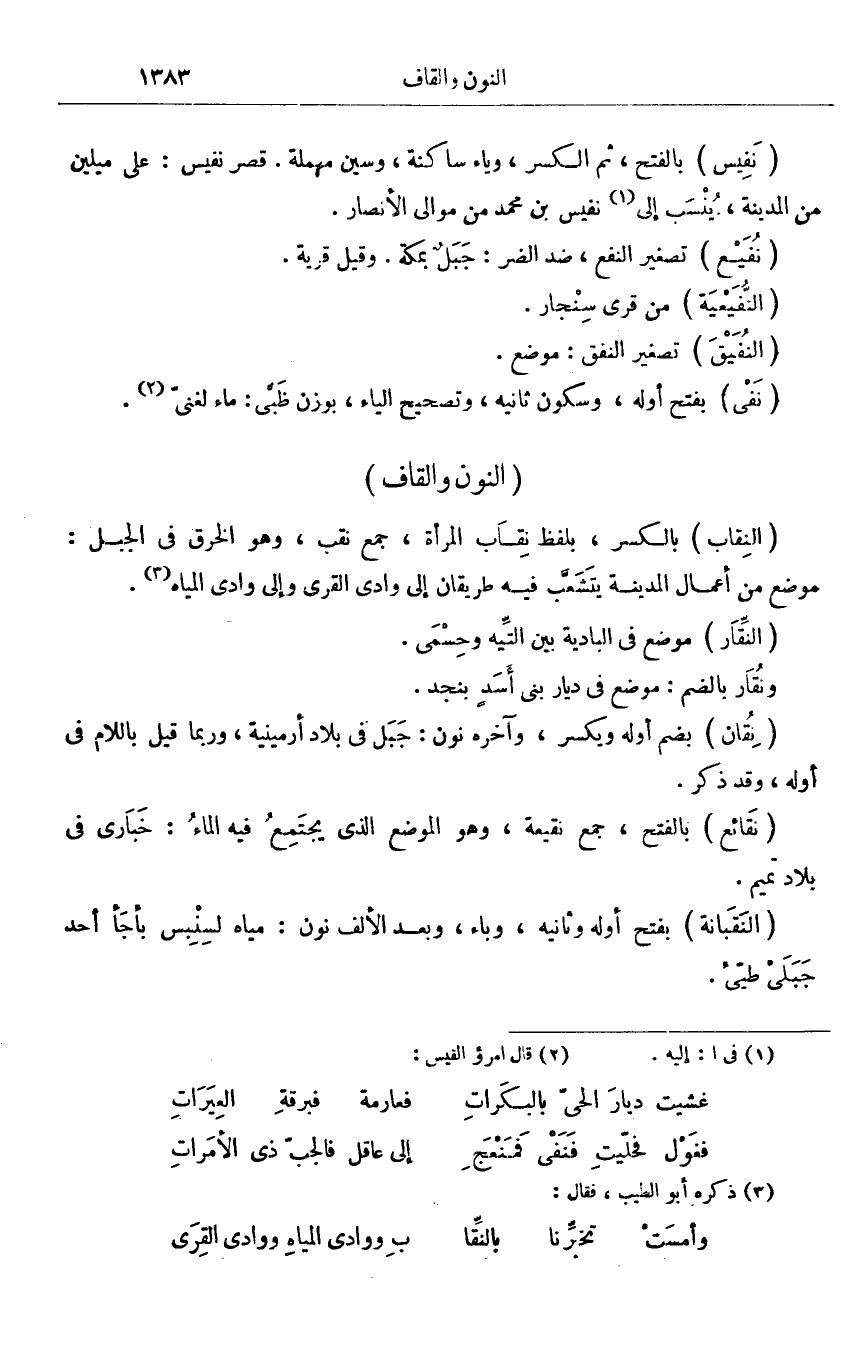 النون والقاف ١٣٨٣
( نَفِيس ) بالفتح ، ثم الكسر ، وياء ساكنة ، وسين مهملة . قصر نفيس : على ميلين
من المدينة ، يُنْسَب إلى(١) نفيس بن محمد من موالى الأنصار .
( نُفَيْع ) تصغير النفع ، ضد الضر : جَبَلٌ بمكة . وقيل قرية .
( النُّفَيْعِيَة ) من قرى سِنْجار .
( النُفَيْقَ ) تصغير النفق : موضع .
( نَفْى ) بفتح أوله ، وسكون ثانيه ، وتصحيح الياء ، بوزن ظَبْى : ماء لغنىّ (٢) .
( النون والقاف )
( النِقاب ) بالكسر ، بلفظ نِقاَب المرأة ، جمع نقب ، وهو الخرق فى الجبل :
موضع من أعمال المدينة يتَشَعَّب فيه طريقان إلى وادى القرى وإلى وادى المياه(٣) .
( النِّقَار ) موضع فى البادية بين التِّيه وحِسْمَى .
ونُقَار بالضم : موضع فى ديار بنى أَسَدٍ بنجد .
( نِقُان ) بضم أوله ويكسر ، وآخره نون : جَبَل فى بلاد أرمينية ، وربما قيل باللام فى
أوله ، وقد ذكر .
( نَقَائع ) بالفتح ، جمع نقيعة ، وهو الموضع الذى يجتَمِعُ فيه الماءُ : خَبَارى فى
بلاد تميم .
( النَقَبانة ) بفتح أوله وثانيه ، وباء ، وبعد الألف نون : مياه لسِنْبِس بأجَأ أحد
جَبَلَىْ طيّئْ .
(١) فى ا : إليه . (٢) قال امرؤ القيس :
غشيت ديارَ الحىّ بالبكَراتِ فعارمة فبرقةِ العِيَرَاتِ
فغَوْل فحلّيتِ فَنَفْى فَمَنْعَجٍ إلى عاقل فالجبّ ذى الأمَراتِ
(٣) ذكره أبو الطيب ، فقال :
وأمسَتْ تخبرِّنا بالنقِّا بِ ووادى المياهِ ووادى القِرَى